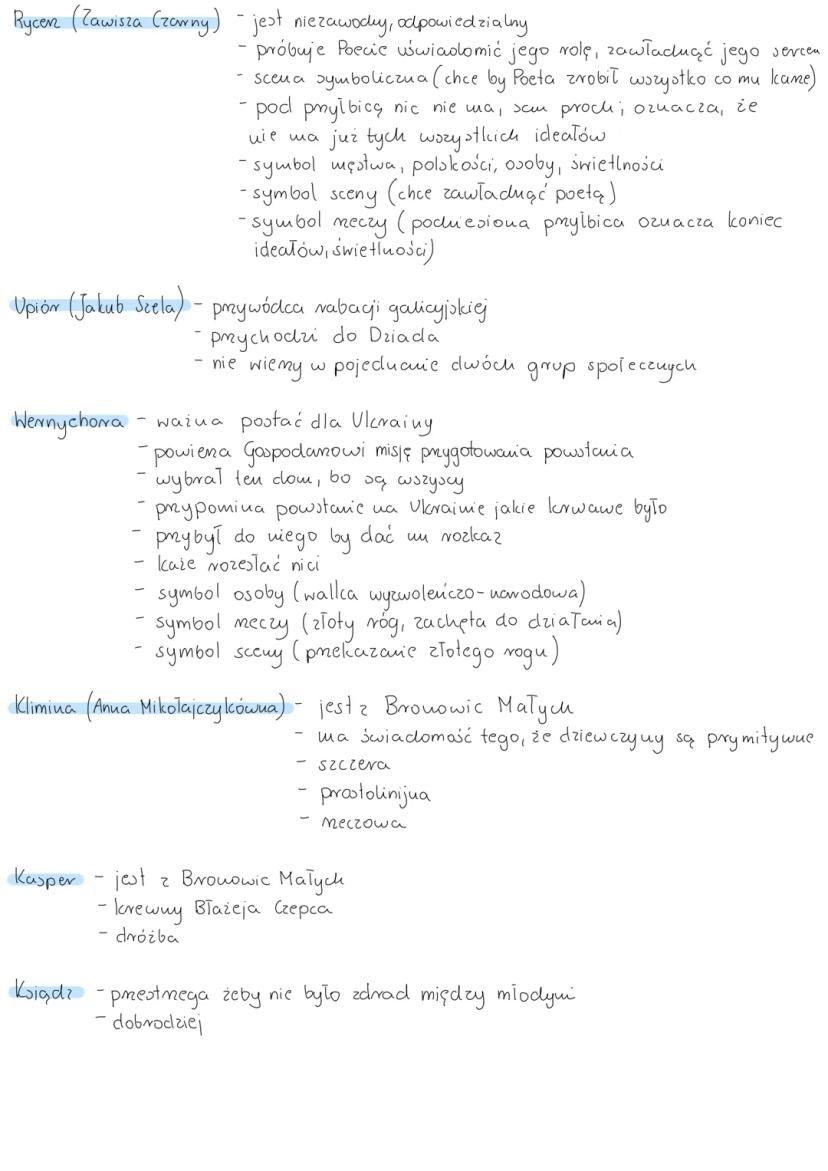 Rycerz (Zawisza Czarny) - jest niezawodny, odpowiedzialny
- próbuje Poecie uświadomić jego rolę, zawładnąć jego sercem
- scena symboliczna (chce by Poeta zrobił wszystko co mu każe)
- pod przyłbicą nic nie ma, sam proch; oznacza, że
nie ma już tych wszystkich ideałów
- symbol męstwa, polskości, osoby, świetlności
- symbol sceny (chce zawładnąć poetą)
- symbol rzeczy (podniesiona przyłbica oznacza koniec
ideałów, świetlności)
Upiór (Jakub Szela) - przywódca rabacji galicyjskiej
- przychodzi do Dziada
- nie wierzy w pojednanie dwóch grup społecznych
Wernychora - ważna postać dla Ukrainy
- powierza Gospodarzowi misję przygotowania powstania
- wybrał ten dom, bo są wszyscy
- przypomina powstanie na Ukrainie jakie krwawe było
- przybył do niego by dać mu rozkaz
- każe rozesłać nici
- symbol osoby (walka wyzwoleńczo-narodowa)
- symbol rzeczy (złoty róg, zachęta do działania)
- symbol sceny (przekazanie złotego rogu)
Klimina (Anna Mikołajczykówna) - jest z Bronowic Małych
- ma świadomość tego, że dziewczyny są prymitywne
- szczera
- prostolinijna
- rzeczowa
Kasper - jest z Bronowic Małych
- krewny Błażeja Czepca
- dróżba
Ksiądz - przestrzega żeby nie było zdrad między młodymi
- dobrodziej